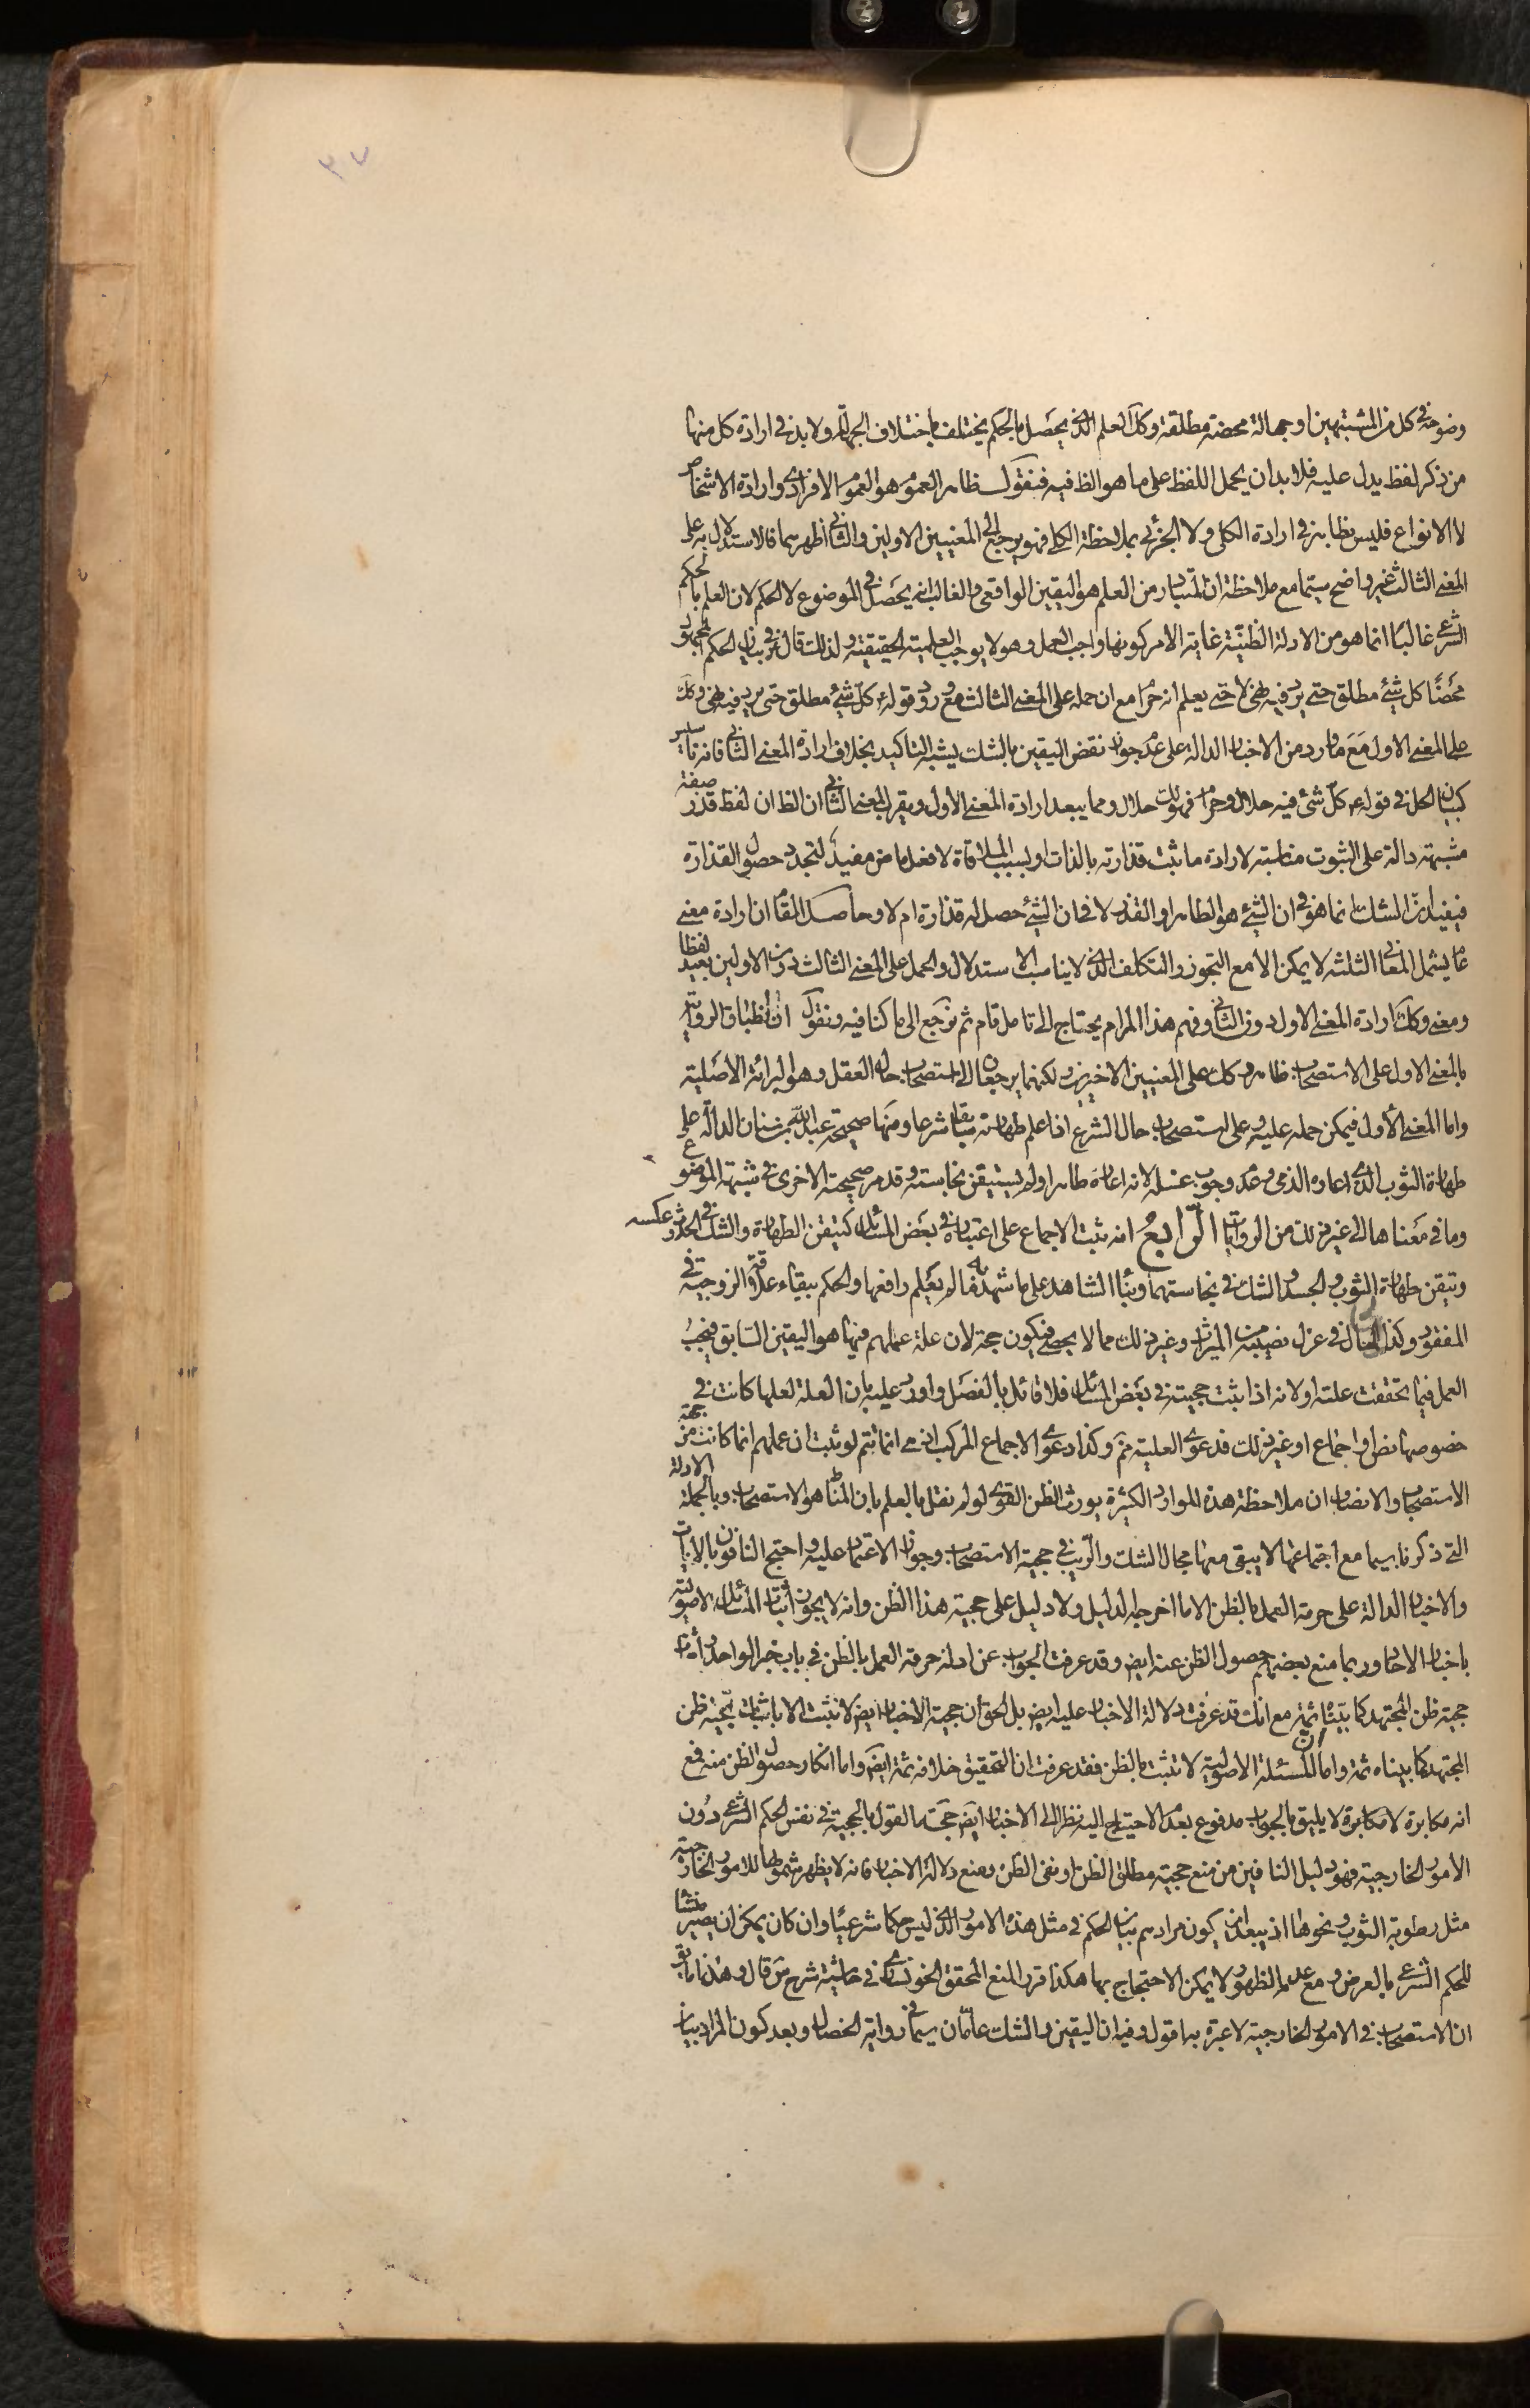 ٣٧
وضوحه في كل من المشتبهين او جهالة محضة مطلقة وكك العلم الذى يحصل بالحكم يختلف باختلاف الجهالة ولا بد في ارادة كل منها
من ذكر لفظ يدل عليه فلا بد ان يحمل اللفظ على ما هو الظ فيه فنقول ظاهر العموم هو العموم الافرادى وارادة الاشخاص
لا الانواع فليس بظاهر في ارادة الكلى ولا الجزئى بملاحظة الكلى فهو يرجع الى المعنيين الاولين والثانى اظهرهما فالاستدلال به على
المعنى الثالث غير واضح سيما مع ملاحظة ان المتبادر من العلم هو اليقين الواقعى والغالب انه يحصل في الموضوع لا الحكم لان العلم بالحكم
الشرعى غالبا انما هو من الادلة الظنية غاية الامر كونها واجب العمل وهو لا يوجب العلمية الحقيقية ولذلك قال في بيان الحكم المجهول
محضا كل شئ مطلق حتى يرد فيه نهى لا حتى يعلم انه حرام مع ان حمله على المعنى الثالث مع ورود قوله ع كل شئ مطلق حتى يرد فيه نهى وكك
على المعنى الاول مع ما ورد من الاخبار الدالة على عدم جواز نقض اليقين بالشك يشبه التاكيد بخلاف ارادة المعنى الثانى فانه تاسيس
كبيان الحل في قوله ع كل شئ فيه حلال وحرام فهو لك حلال ومما يبعد ارادة المعنى الاول ويقرب المعنى الثانى ان الظ ان لفظ قذر صفة
مشبهة دالة على الثبوت مناسبة لارادة ما ثبت قذارته بالذات او بسبب الملاقاة لا فعل ماض مفيد لتجدد حصول القذارة
فيفيد ان الشك انما هو في ان الشئ هو الطاهر او القذر لا في ان الشئ حصل له قذارة ام لا وحاصل المقام ان ارادة معنى
عام يشمل المعانى الثلثة لا يمكن الا مع التجوز والتكلف الذى لا يناسب الاستدلال والحمل على المعنى الثالث دون الاولين بعيد لفظا
ومعنى وكك ارادة المعنى الاول دون الثانى وفهم هذا المرام يحتاج الى تامل تام ثم نرجع الى ما كنا فيه ونقول ان انطباق الرواية
بالمعنى الاول على الاستصحاب ظاهر وكك على المعنيين الاخيرين لكنهما يرجعان الى استصحاب حال العقل وهو البرائة الاصلية
واما المعنى الاول فيمكن حمله عليه وعلى استصحاب حال الشرع اذا علم طهارته سابقا شرعا ومنها صحيحة عبد الله بن سنان الدالة على
طهارة الثوب الذى اعاره الذمى وعدم وجوب غسله لانه اعاره طاهرا ولم يستيقن نجاسته وقد مر صحيحته الاخرى في شبهة الموضوع
وما في معناها الى غير ذلك من الروايات الرابع انه ثبت الاجماع على اعتباره في بعض المسائل كتيقن الطهارة والشك في الحدث وعكسه
وتيقن طهارة الثوب والجسد والشك في نجاستهما وبناء الشاهد على ما شهد به ما لم يعلم رافعها والحكم ببقاء علاقة الزوجية في
المفقود وكذا الحال في عزل نصيبه من الميراث وغير ذلك مما لا يحصى فيكون حجة لان علة عملهم فيها هو اليقين السابق فيجب
العمل فيما تحققت علته او لانه اذا ثبت حجيته في بعض المسائل فلا قائل بالفصل واورد عليه بان العلة لعلها كانت في
خصوصها نص او اجماع او غير ذلك فدعوى العلية مم وكذا دعوى الاجماع المركب اذ هى انما تتم لو ثبت ان عملهم انما كانت من جهة
الاستصحاب والانصاف ان ملاحظة هذه الموارد الكثيرة يورث الظن القوى لو لم نقل بالعلم بان المناط هو الاستصحاب وبالجملة الادلة
التى ذكرنا سيما مع اجتماعها لا يبقى معها مجال الشك والريب في حجية الاستصحاب وجواز الاعتماد عليه واحتج النافون بالايات
والاخبار الدالة على حرمة العمل بالظن الا ما اخرجه الدليل ولا دليل على حجية هذا الظن وانه لا يجوز اثبات المسائل الاصولية
باخبار الاحاد وربما منع بعضهم حصول الظن عنه ايض وقد عرفت الجواب عن ادلة حرمة العمل بالظن في باب خبر الواحد واثبات
حجية ظن المجتهد كما بيناه ثمة مع انك قد عرفت دلالة الاخبار عليه ايض بل الحق ان حجية الاخبار ايض لا تثبت الا باثبات حجية ظن
المجتهد كما بيناه ثمة واما ان المسئلة الاصولية لا تثبت بالظن فقد عرفت ان التحقيق خلافه ثمة ايض واما انكار حصول الظن منه فمع
انه مكابرة لا مكابرة لا يليق بالجواب مدفوع بعدم الاحتياج اليه نظرا الى الاخبار ايض حجة القول بالحجية في نفس الحكم الشرعى دون
الامور الخارجية فهو دليل النافين من منع حجية مطلق الظن او نفى الظن ومنع دلالة الاخبار فانه لا يظهر شمولها للامور الخارجية
مثل رطوبة الثوب ونحوها اذ يبعد ان يكون مرادهم بيان الحكم في مثل هذه الامور الذى ليس حكما شرعيا وان كان يمكن ان يصير منشا
للحكم الشرعى بالعرض ومع عدم الظهور لا يمكن الاحتجاج بها هكذا قرر المنع المحقق الخونسارى في حاشية شرح س قال وهذا ما يق
ان الاستصحاب في الامور الخارجية لا عبرة به اقول وفيه ان اليقين والشك عامان سيما في رواية الخصال وبعد كون المراد بيان